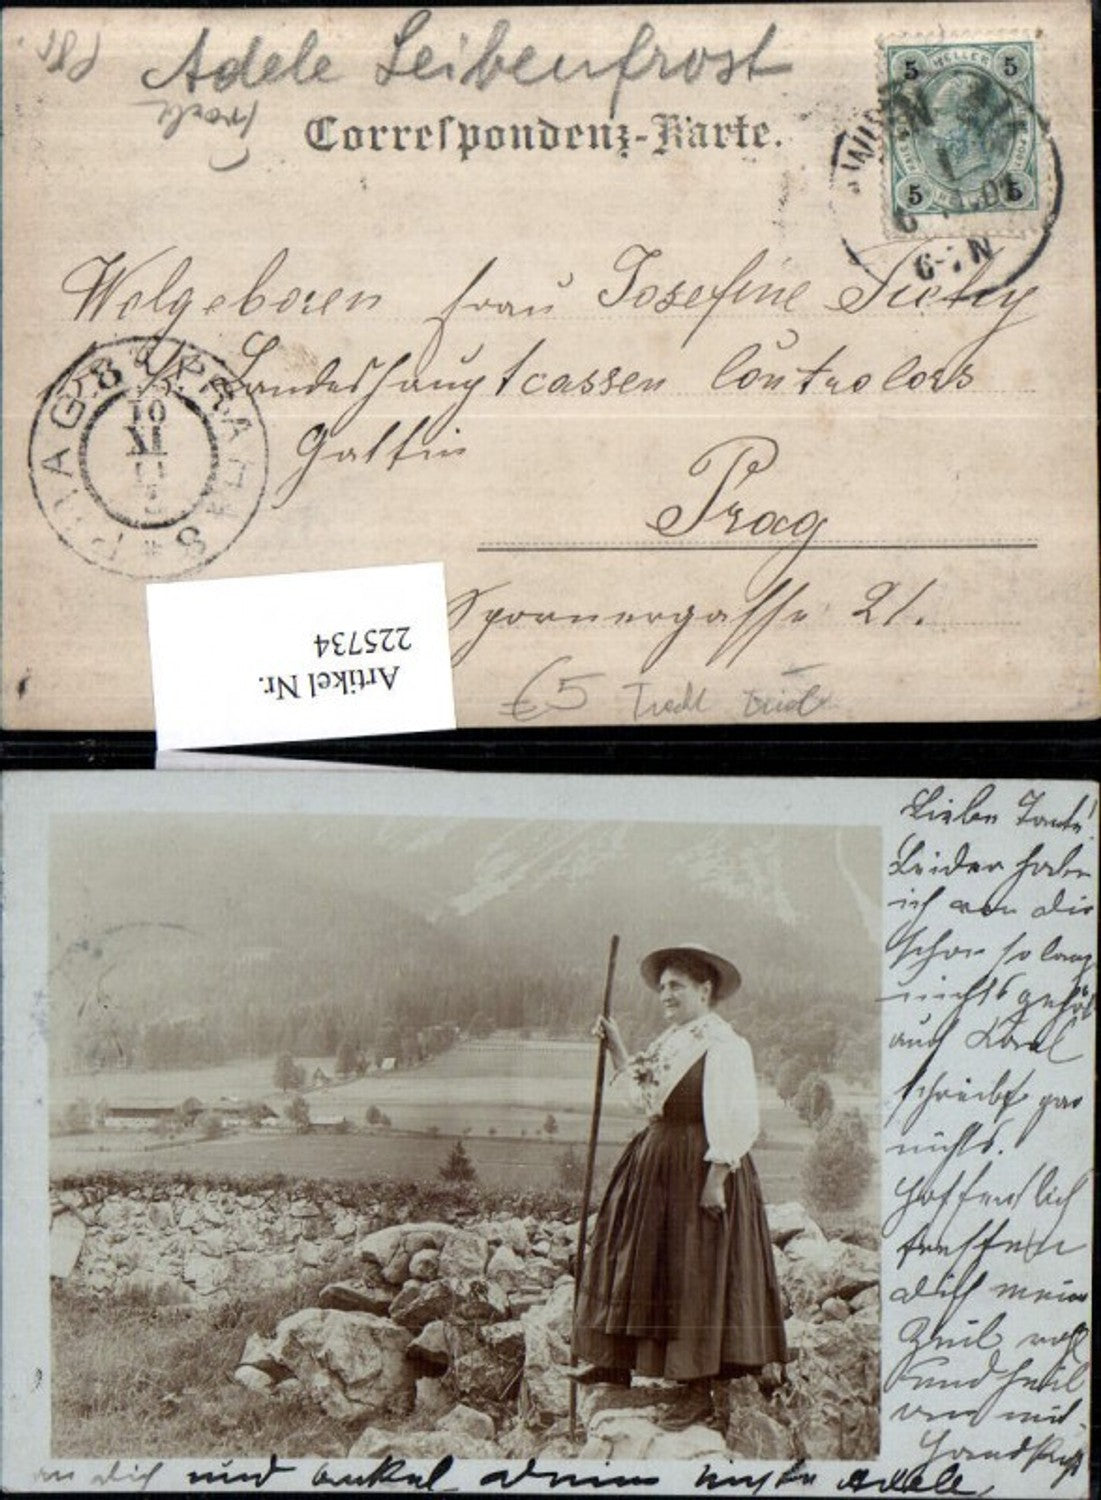 Adele Leibenfrost
Correspondenz-Karte.
5 HELLER 5
5 5
WIEN
6-7 N
Wolgeboren Frau Josefine Tichy
Landeshauptcassen Controlors
Gattin
Prag
Spornergasse 21.
PRAG 8 PRAHA 8
Artikel Nr.
225734
€5
Liebe Tante!
Leider habe
ich von dir
schon so lang
nichts gehört
auch Karl
schreibt gar
nichts.
Hoffentlich
treffen
dich meine
und
Handkuß
an dich und onkel deine Adele,